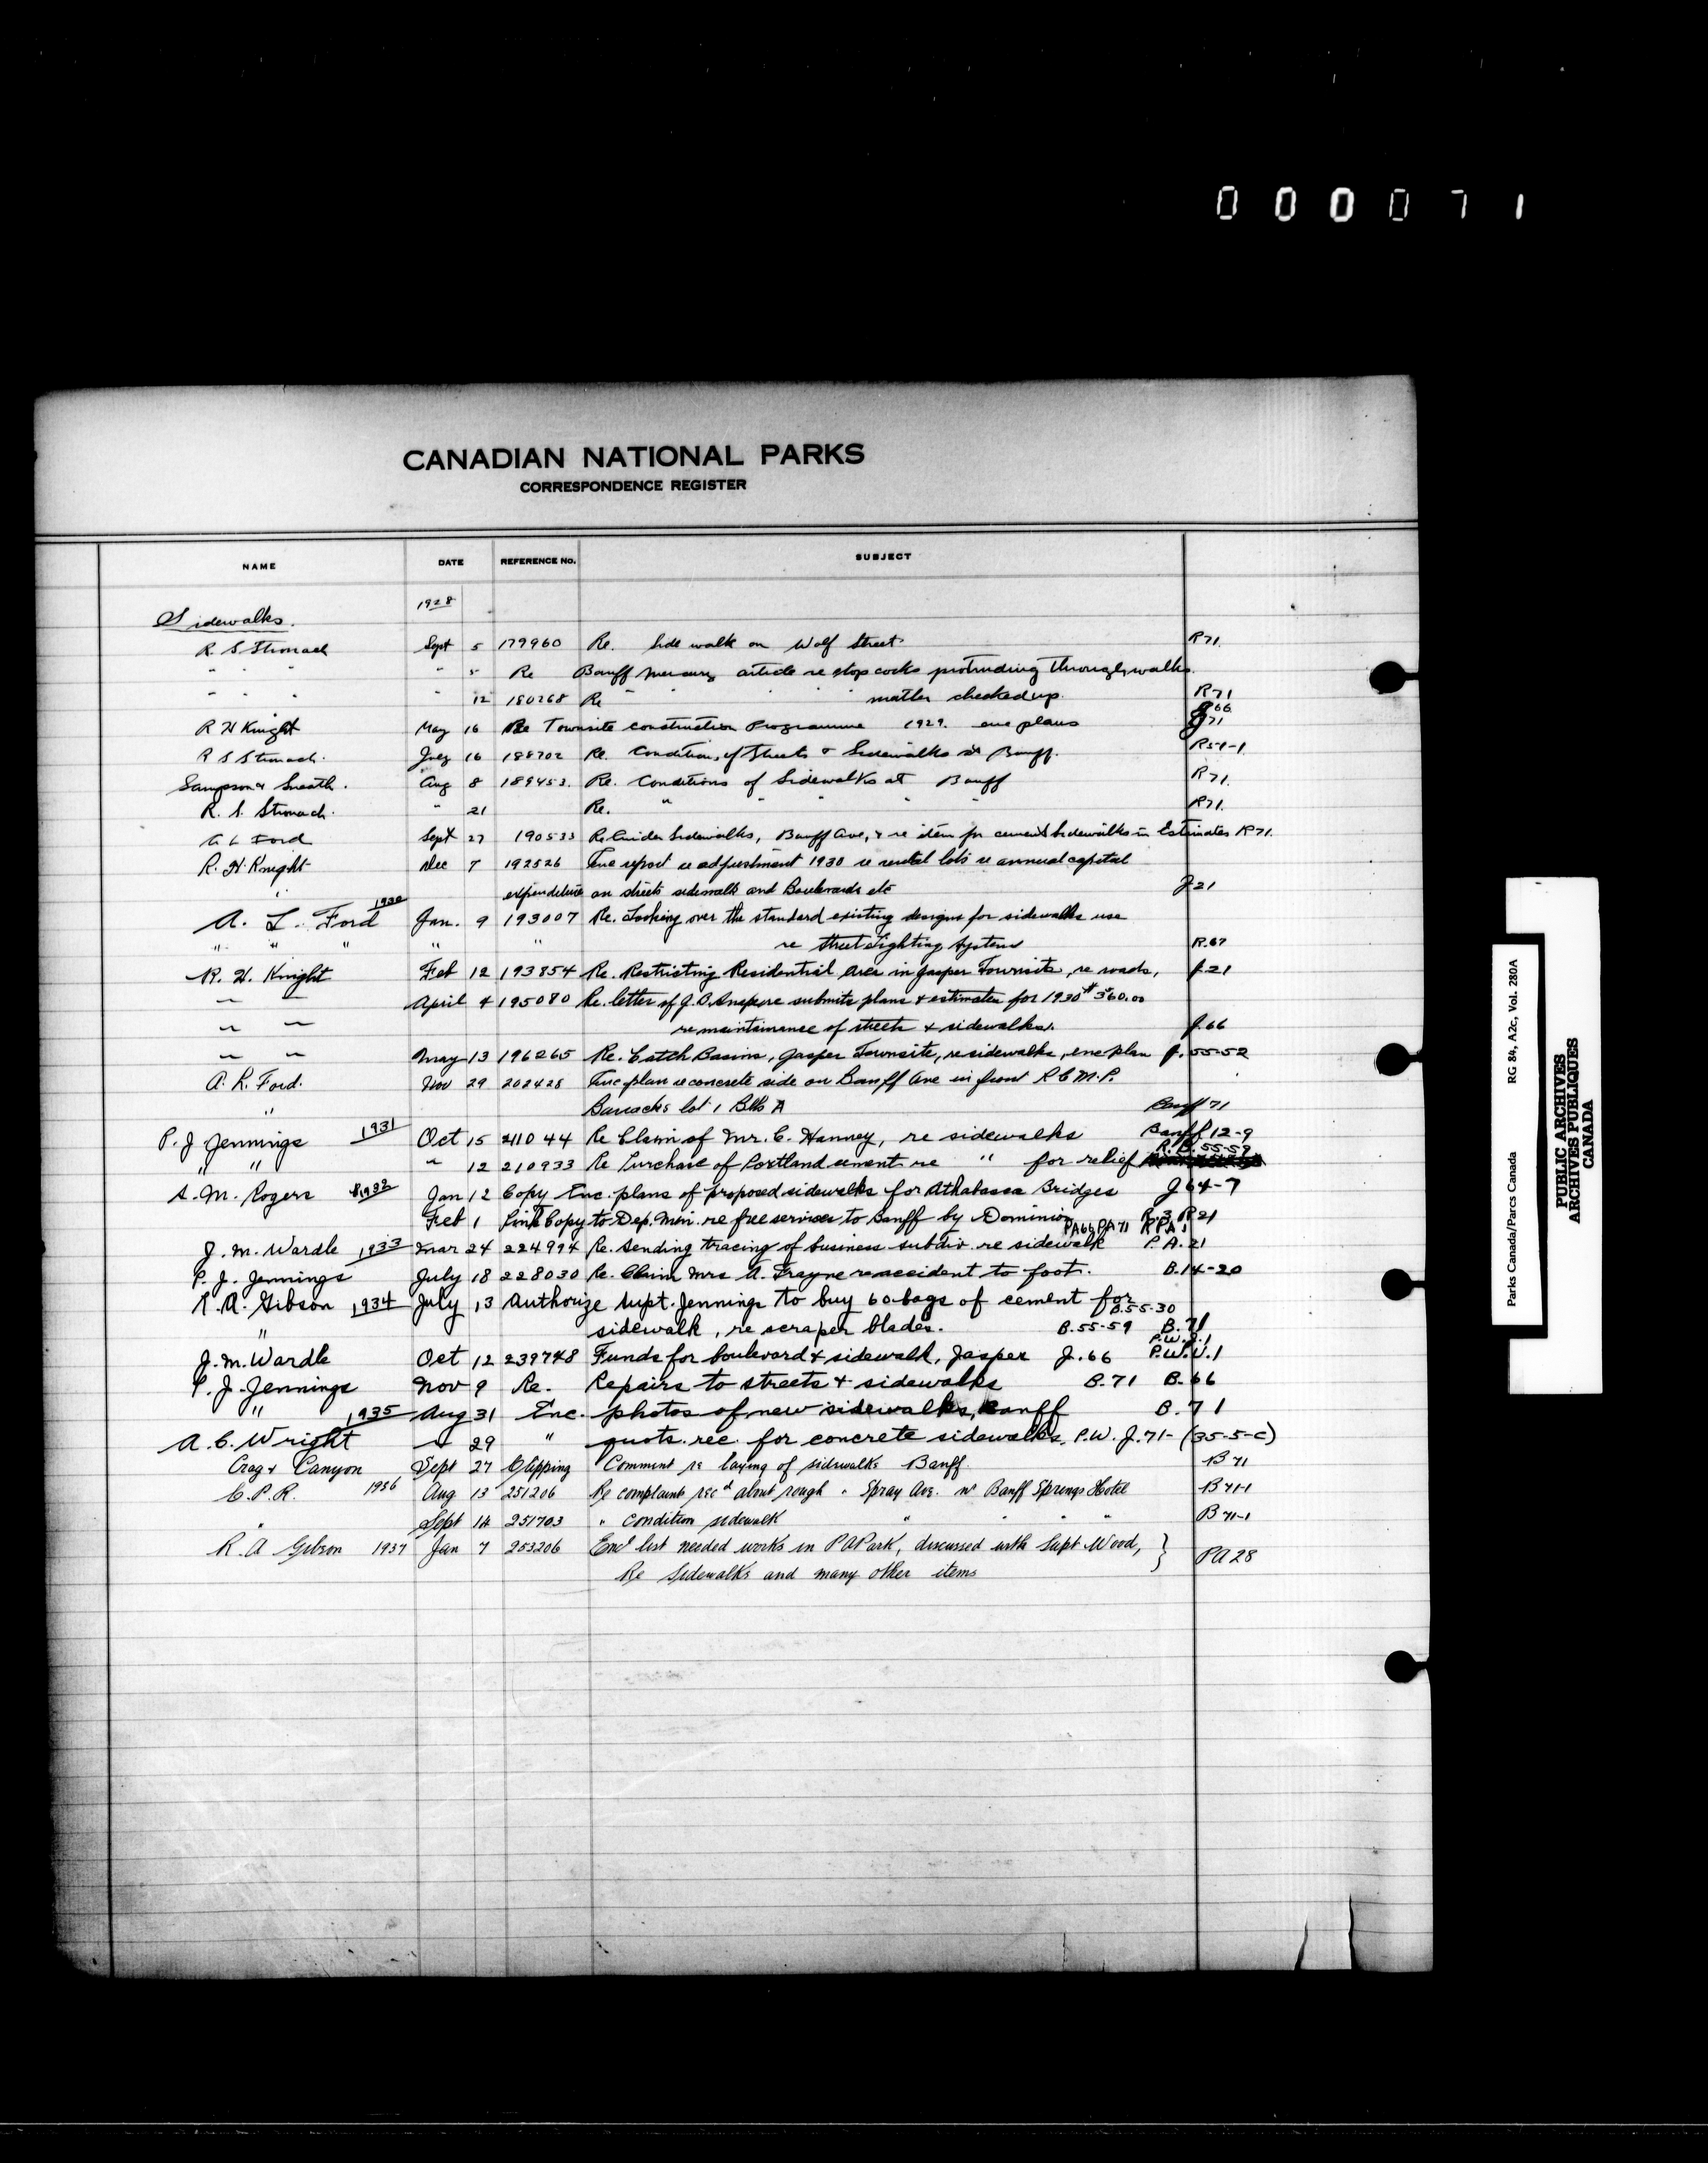 000071
CANADIAN NATIONAL PARKS
CORRESPONDENCE REGISTER
NAME DATE REFERENCE No. SUBJECT
1928
Sidewalks.
R. S Stronach Sept 5 179960 Re. Side walk on Wolf Street R71.
" " " " 5 Re Banff Mercury article re stop cocks protruding through walks.
" " " " 12 180268 Re " " " matter checked up. R71
J66
R H Knight May 16 Re Townsite construction Programme 1929. enc plans J71
R S Stronach. July 16 188702 Re. Conditions of Streets & Sidewalks at Banff. R51-1
Sampson & Sneath. Aug 8 189453. Re. Conditions of Sidewalks at Banff R71.
R. S. Stronach. " 21 Re. " " " " " R71.
A L Ford Sept 27 190533 Re Cinder Sidewalks, Banff Ave, & re item for cement Sidewalks in Estimates R71.
R. H. Knight Dec 7 192526 Enc report re adjustment 1930 re rental lots re annual capital
" expenditure on streets sidewalk and Boulevards etc J21
1930
A. L. Ford Jan. 9 193007 Re. Looking over the standard existing designs for sidewalks use
" " " " " re Street Lighting System R.67
R. H. Knight Feb 12 193854 Re. Restricting Residential Area in Jasper Townsite, re roads, J.21
" " April 4 195080 Re. letter of J.B. Snape re submits plans & estimates for 1930 # 360.00
" " re maintainance of streets & sidewalks. J.66
" " May 13 196265 Re. Catch Basins, Jasper Townsite, re sidewalks, enc plan J. 55-52
A. L. Ford. Nov 29 202428 Enc plan re concrete side on Banff Ave in front R C M.P.
" Barracks lot 1 Blk A Banff 71
P. J Jennings 1931 Oct 15 211044 Re Claim of Mr. C. Hanney, re sidewalks Banff 12-9
R.B. 55-59
" " " 12 210933 Re Purchase of Portland cement re " for relief
S. M. Rogers 1932 Jan 12 Copy Enc. plans of proposed sidewalks for Athabasca Bridges J 64-7
Feb 1 Pink Copy to Dep. Min. re free services to Banff by Dominion R.3 R21
PA66 PA71 RPA1
J. M. Wardle 1933 Mar 24 224994 Re. Sending tracing of business subdiv. re sidewalk P.A.21
P. J. Jennings July 18 228030 Re. Claim Mrs A. Frayne re accident to foot. B.14-20
R. A. Gibson 1934 July 13 Authorize Supt. Jennings to buy 60 bags of cement for
B.55-30
" sidewalk, re scraper blades. B.55-59 B.71
P.W.J.1
J. M. Wardle Oct 12 239748 Funds for boulevard & sidewalk, Jasper J.66 P.W.U.1
P. J. Jennings Nov 9 Re. Repairs to streets & sidewalks B.71 B.66
" 1935 Aug 31 Enc. photos of new sidewalks, Banff B.71
A. C. Wright " 29 " quots. rec. for concrete sidewalks, P.W. J.71-(35-5-C)
Crag & Canyon Sept 27 Clipping Comment re laying of sidewalks Banff. B 71
C. P. R. 1936 Aug 13 251206 Re complaint rec'd about rough " Spray Ave. nr Banff Springs Hotel B 71-1
" Sept 14 251703 " Condition sidewalk " " " " B 71-1
R. A Gibson 1937 Jan 7 253206 Encl list needed works in P A Park, discussed with Supt Wood, } PA 28
Re Sidewalks and many other items
Parks Canada/Parcs Canada RG 84, A2c, Vol. 280A
PUBLIC ARCHIVES
ARCHIVES PUBLIQUES
CANADA